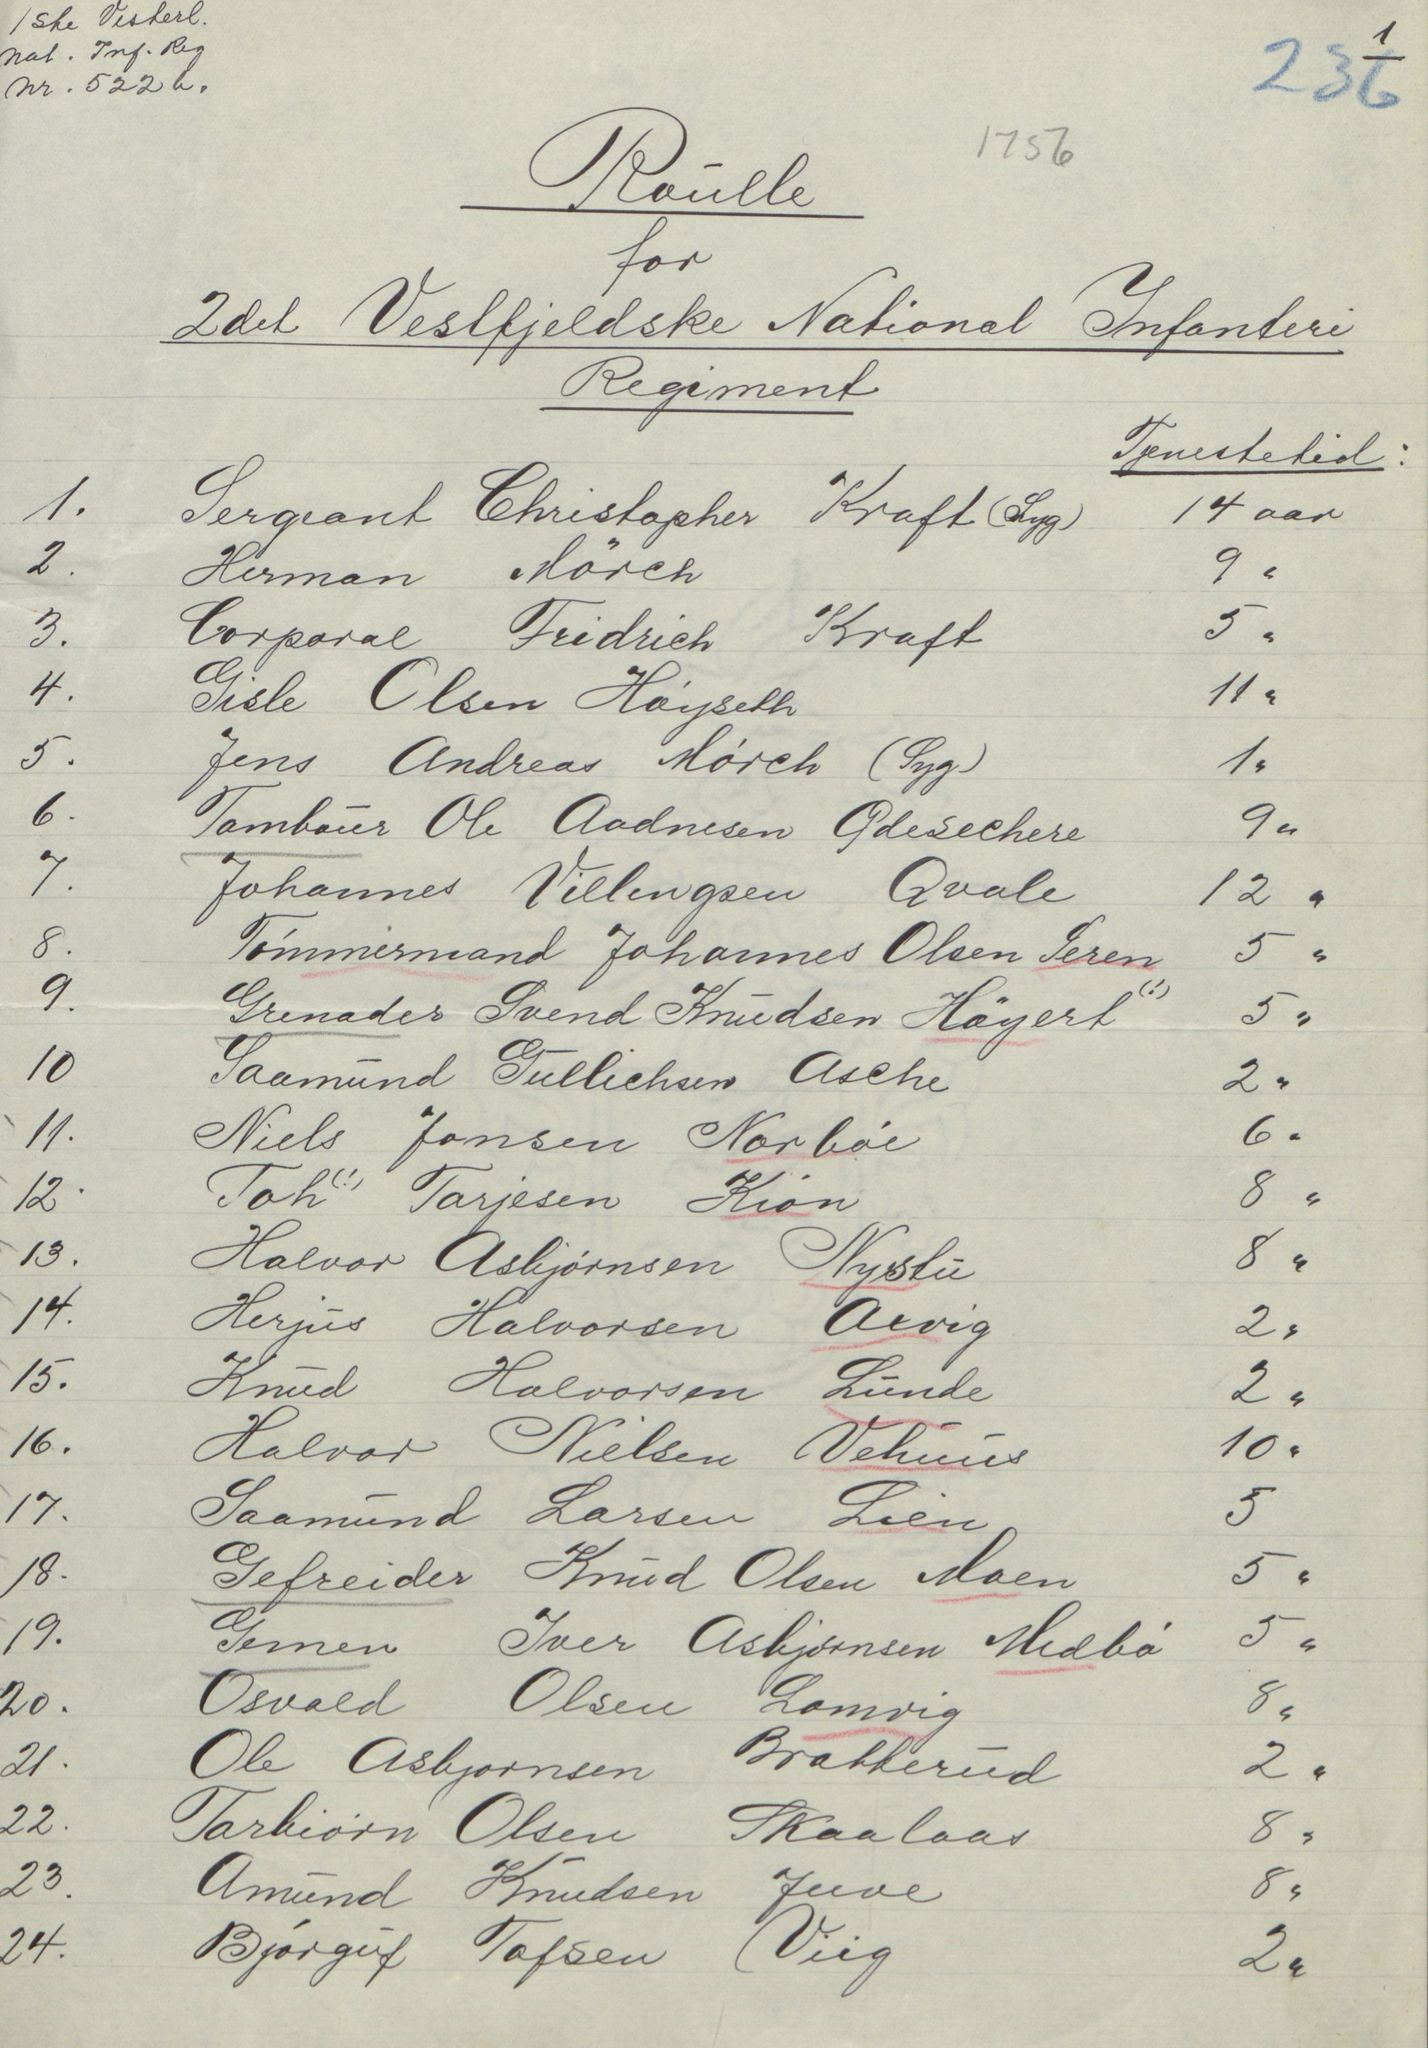 1ske Vesterl.
nat. Inf. Reg
Nr. 522 b.
1
236
1756
Roülle
for
2det Vestfjeldske National Infanteri
Regiment
Tjenestetid:
1. Sergeant Christopher Kraft (Syg) 14 aar
2. Herman Mörch 9 "
3. Corporal Fridrich Kraft 5 "
4. Gisle Olsen Höyseth 11 "
5. Jens Andreas Mórch (Syg) 1 "
6. Tamboür Ole Aadnesen 9 "
7. Johannes Villingsen Qvale 12 "
8. Tómmermand Johannes Olsen Seren 5 "
9. Grenader Svend Knüdsen Höyert (!) 5 "
10 Saamünd Güllichsen Asche 2 "
11. Niels Jonsen Norbóe 6 "
12. Toh (!) Tarjesen Kión 8 "
13. Halvor Asbjórnsen Nystü 8 "
14. Herjüs Halvorsen Arvig 2 "
15. Knüd Halvorsen Lünde 2 "
16. Halvor Nielsen Vehüüs 10 "
17. Saamünd Larsen Lien 5
18. Gefreider Knüd Olsen Moen 5 "
19. Gemen Iver Asbjórnsen Medbó 5 "
20. Osvald Olsen Lomvig 8 "
21. Ole Asbjornsen Bratterüd 2 "
22. Tarbiórn Olsen Skaalaas 8 "
23. Amünd Knüdsen Juve 8 "
24. Bjórgüf Tofsen Viig 2 "